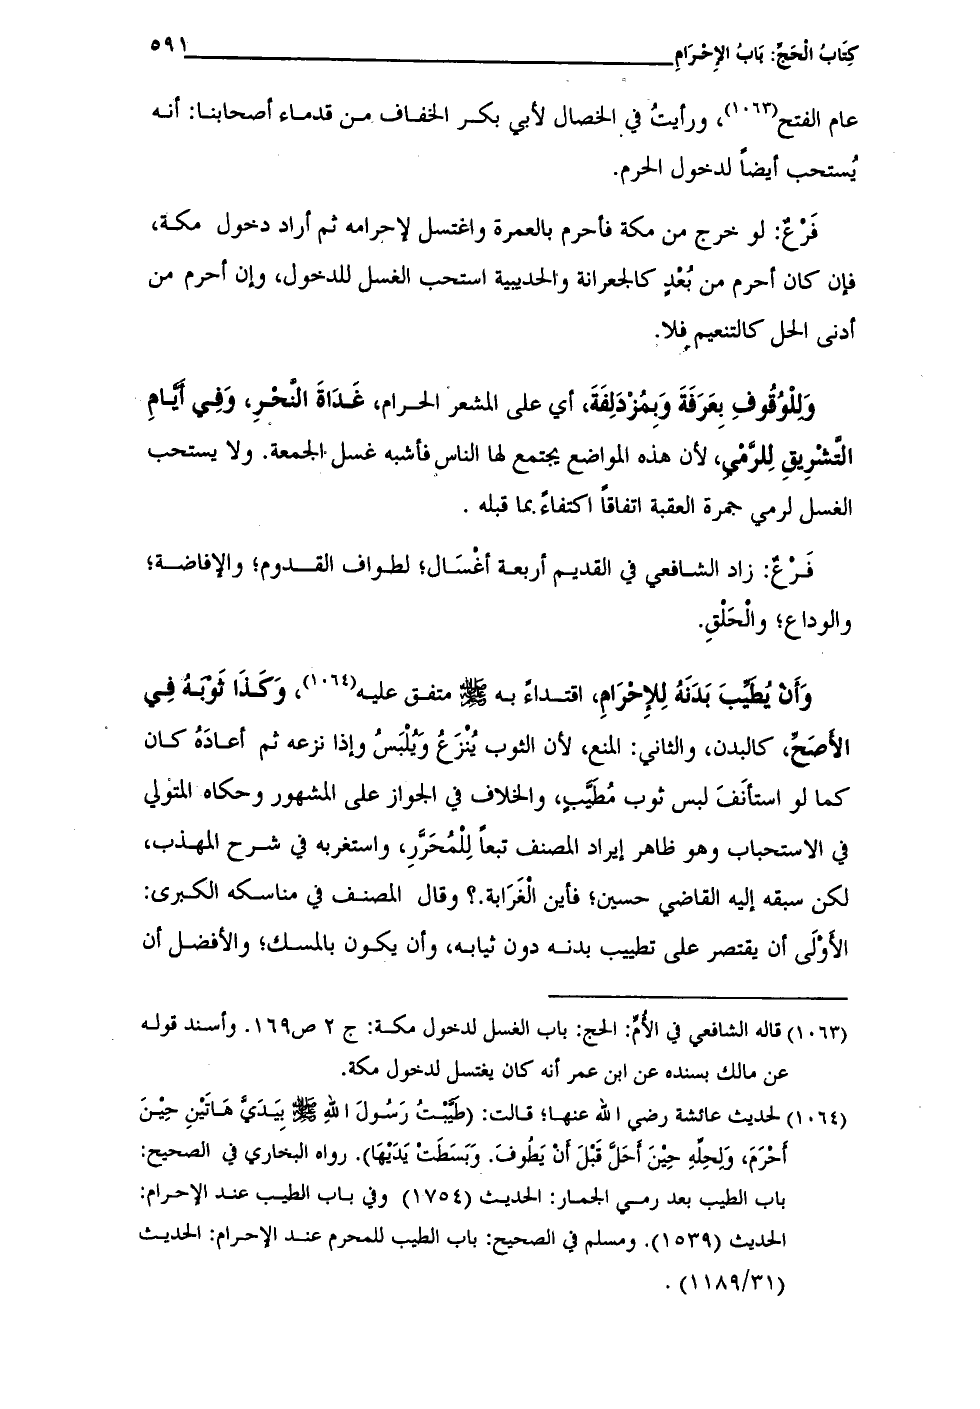 كِتَابُ الْحَجِّ: بَابُ الإِحْرَامِ ٥٩١
عام الفتح(١٠٦٣)، ورأيتُ في الخصال لأبي بكر الخفاف من قدماء أصحابنا: أنه
يُستحب أيضاً لدخول الحرم.
فَرْعٌ: لو خرج من مكة فأحرم بالعمرة واغتسل لإحرامه ثم أراد دخول مكة،
فإن كان أحرم من بُعْدٍ كالجعرانة والحديبية استحب الغسل للدخول، وإن أحرم من
أدنى الحل كالتنعيم فلا.
وَلِلْوُقُوفِ بِعَرَفَةَ وَبِمُزْدَلِفَةَ، أي على المشعر الحرام، غَدَاةَ النَّحْرِ، وَفِي أَيَّامِ
التَّشْرِيقِ لِلرَّمْيِ، لأن هذه المواضع يجتمع لها الناس فأشبه غسل الجمعة. ولا يستحب
الغسل لرمي جمرة العقبة اتفاقاً اكتفاءً بما قبله .
فَرْعٌ: زاد الشافعي في القديم أربعة أغْسَال؛ لطواف القدوم؛ والإفاضة؛
والوداع؛ والْحَلْقِ.
وَأَنْ يُطَيِّبَ بَدَنَهُ لِلإِحْرَامِ، اقتداءً به ﷺ متفق عليه(١٠٦٤)، وَكَذَا ثَوْبَهُ فِي
الأَصَحِّ، كالبدن، والثاني: المنع، لأن الثوب يُنْزَعُ وَيُلْبَسُ وإذا نزعه ثم أعادَهُ كان
كما لو استأنَفَ لبس ثوب مُطَيَّبٍ، والخلاف في الجواز على المشهور وحكاه المتولي
في الاستحباب وهو ظاهر إيراد المصنف تبعاً لِلْمُحَرَّرِ، واستغربه في شرح المهذب،
لكن سبقه إليه القاضي حسين؛ فأين الْغَرَابة.؟ وقال المصنف في مناسكه الكبرى:
الأَوْلَى أن يقتصر على تطييب بدنه دون ثيابه، وأن يكون بالمسك؛ والأفضل أن
(١٠٦٣) قاله الشافعي في الأُمِّ: الحج: باب الغسل لدخول مكة: ج ٢ ص١٦٩. وأسند قوله
عن مالك بسنده عن ابن عمر أنه كان يغتسل لدخول مكة.
(١٠٦٤) لحديث عائشة رضي الله عنها؛ قالت: (طَيَّبْتُ رَسُولَ اللهِ ﷺ بِيَدَيَّ هَاتَيْنِ حِيْنَ
أَحْرَمَ، وَلِحِلِّهِ حِيْنَ أَحَلَّ قَبْلَ أَنْ يَطُوفَ. وَبَسَطَتْ يَدَيْهَا). رواه البخاري في الصحيح:
باب الطيب بعد رمي الجمار: الحديث (١٧٥٤) وفي باب الطيب عند الإحرام:
الحديث (١٥٣٩). ومسلم في الصحيح: باب الطيب للمحرم عند الإحرام: الحديث
(١١٨٩/٣١) .